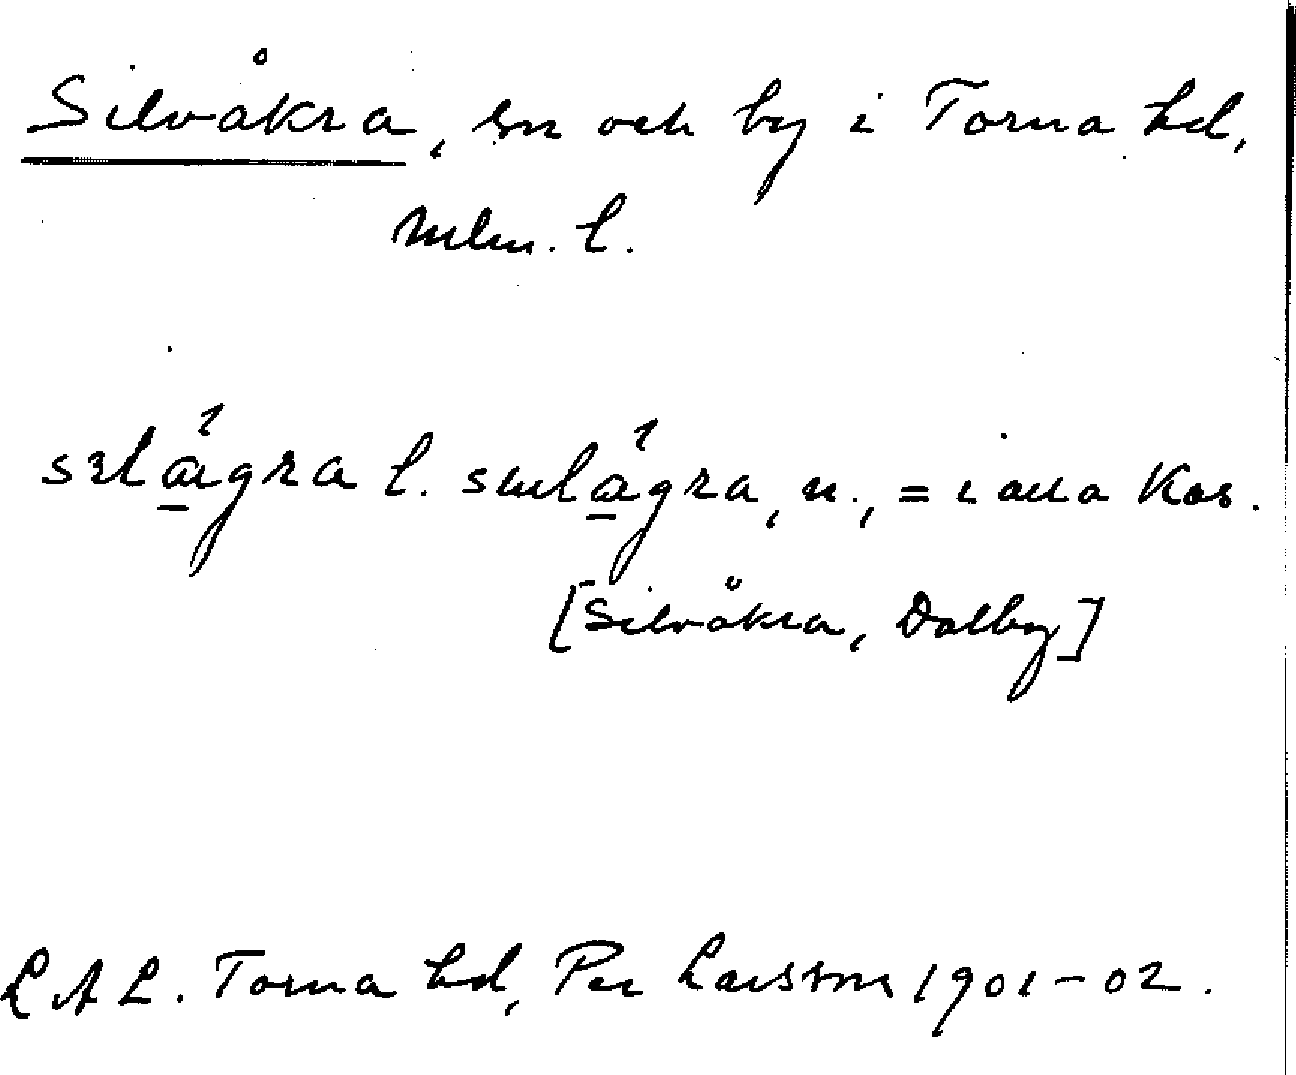 Silvåkra, sn och by i Torna hd,
Mlm. l.
sɛlágra l. sælágra, n., = i alla kas.
[Silvåkra, Dalby]
LAL. Torna hd, Per Larsson 1901-02.